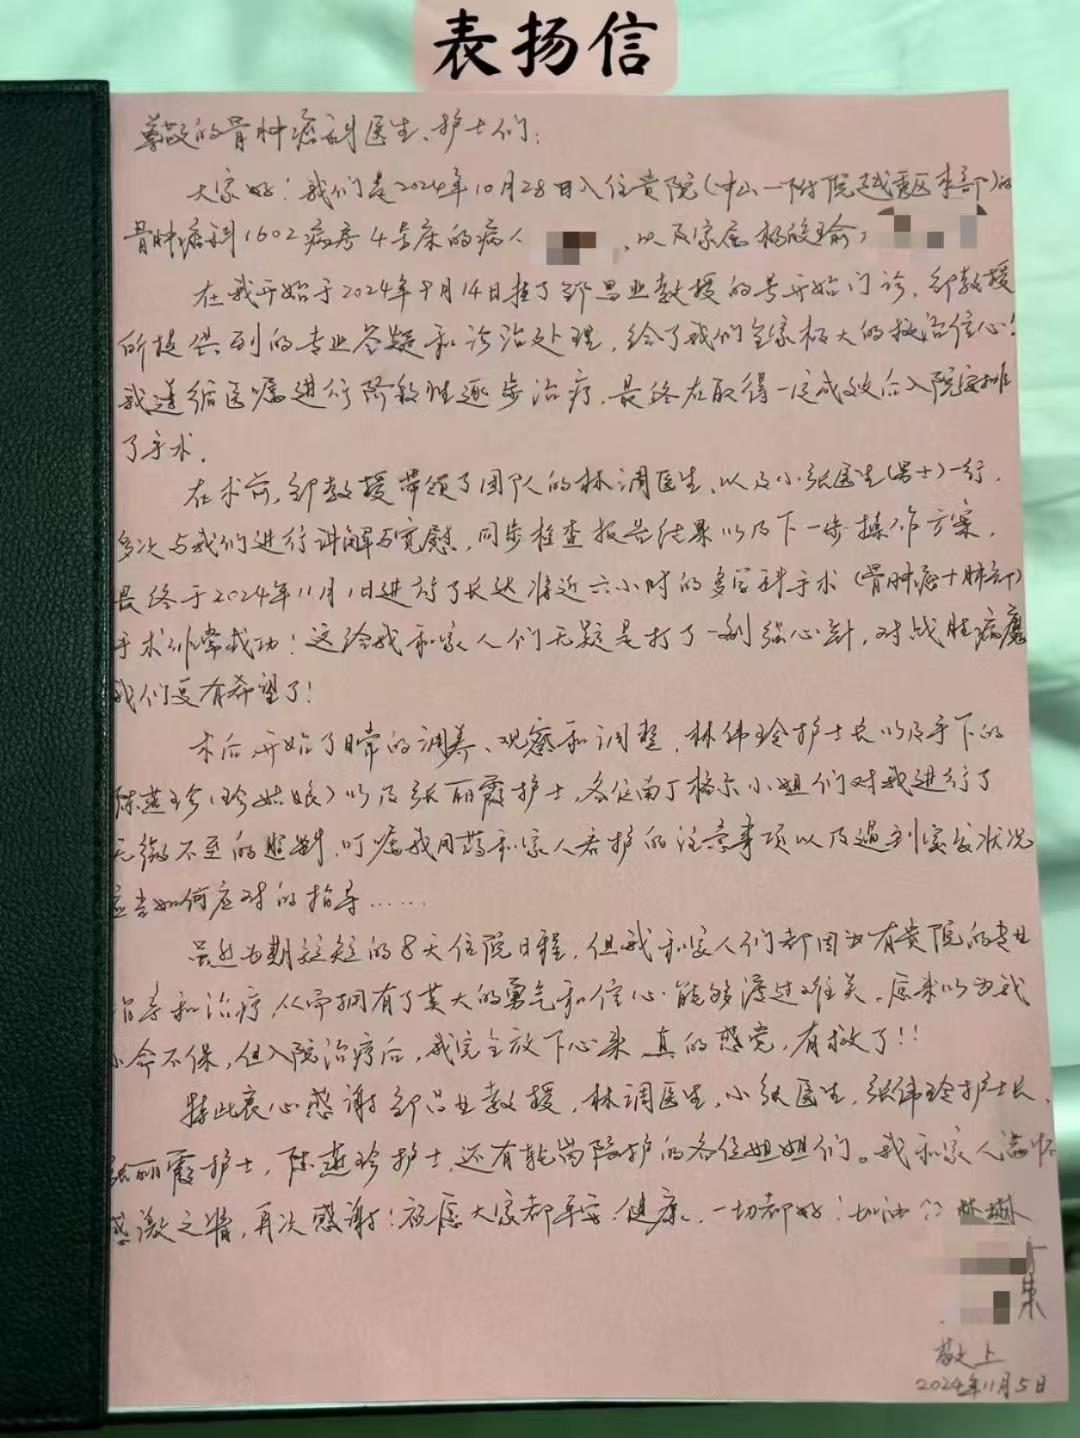 表扬信
尊敬的骨肿瘤科医生、护士们：
大家好！我们是2024年10月28日入住贵院（中山一附院越秀区本部）的
骨肿瘤科1602病房4号床的病人，以及家属杨
在我开始于2024年9月14日挂了邹昌业教授的号开始门诊，邹教授
所提供到的专业答疑和诊治处理，给了我们全家极大的救治信心！
我遵循医嘱进行阶段性逐步治疗，最终在取得一定成效后入院安排
了手术。
在术前，邹教授带领了团队的林调医生、以及小张医生（男士）一行，
多次与我们进行讲解与宽慰，同步检查报告结果以及下一步操作方案，
最终于2024年11月1日进行了长达将近六小时的多学科手术（骨肿瘤+肺部）
手术非常成功！这给我和家人们无疑是打了一剂强心针，对战胜病魔
我们更有希望了！
术后，开始了日常的调养、观察和调整，林伟玲护士长以及手下的
陈燕珍（珍姑娘）以及张丽霞护士，各位南丁格尔小姐们对我进行了
无微不至的照料，叮嘱我用药和家人看护的注意事项以及遇到突发状况
应当如何应对的指导……
虽然为期短短的8天住院日程，但我和家人们都因为有贵院的专业
指导和治疗，从而拥有了莫大的勇气和信心能够渡过难关。原来以为我
小命不保，但入院治疗后，我完全放下心来，真的感觉，有救了！！
特此衷心感谢邹昌业教授，林调医生，小张医生，张伟玲护士长、
张丽霞护士，陈燕珍护士，还有轮岗陪护的各位姐姐们。我和家人满怀
感激之情，再次感谢！祝愿大家都平安、健康，一切都好！加油
朱
敬上
2024年11月5日